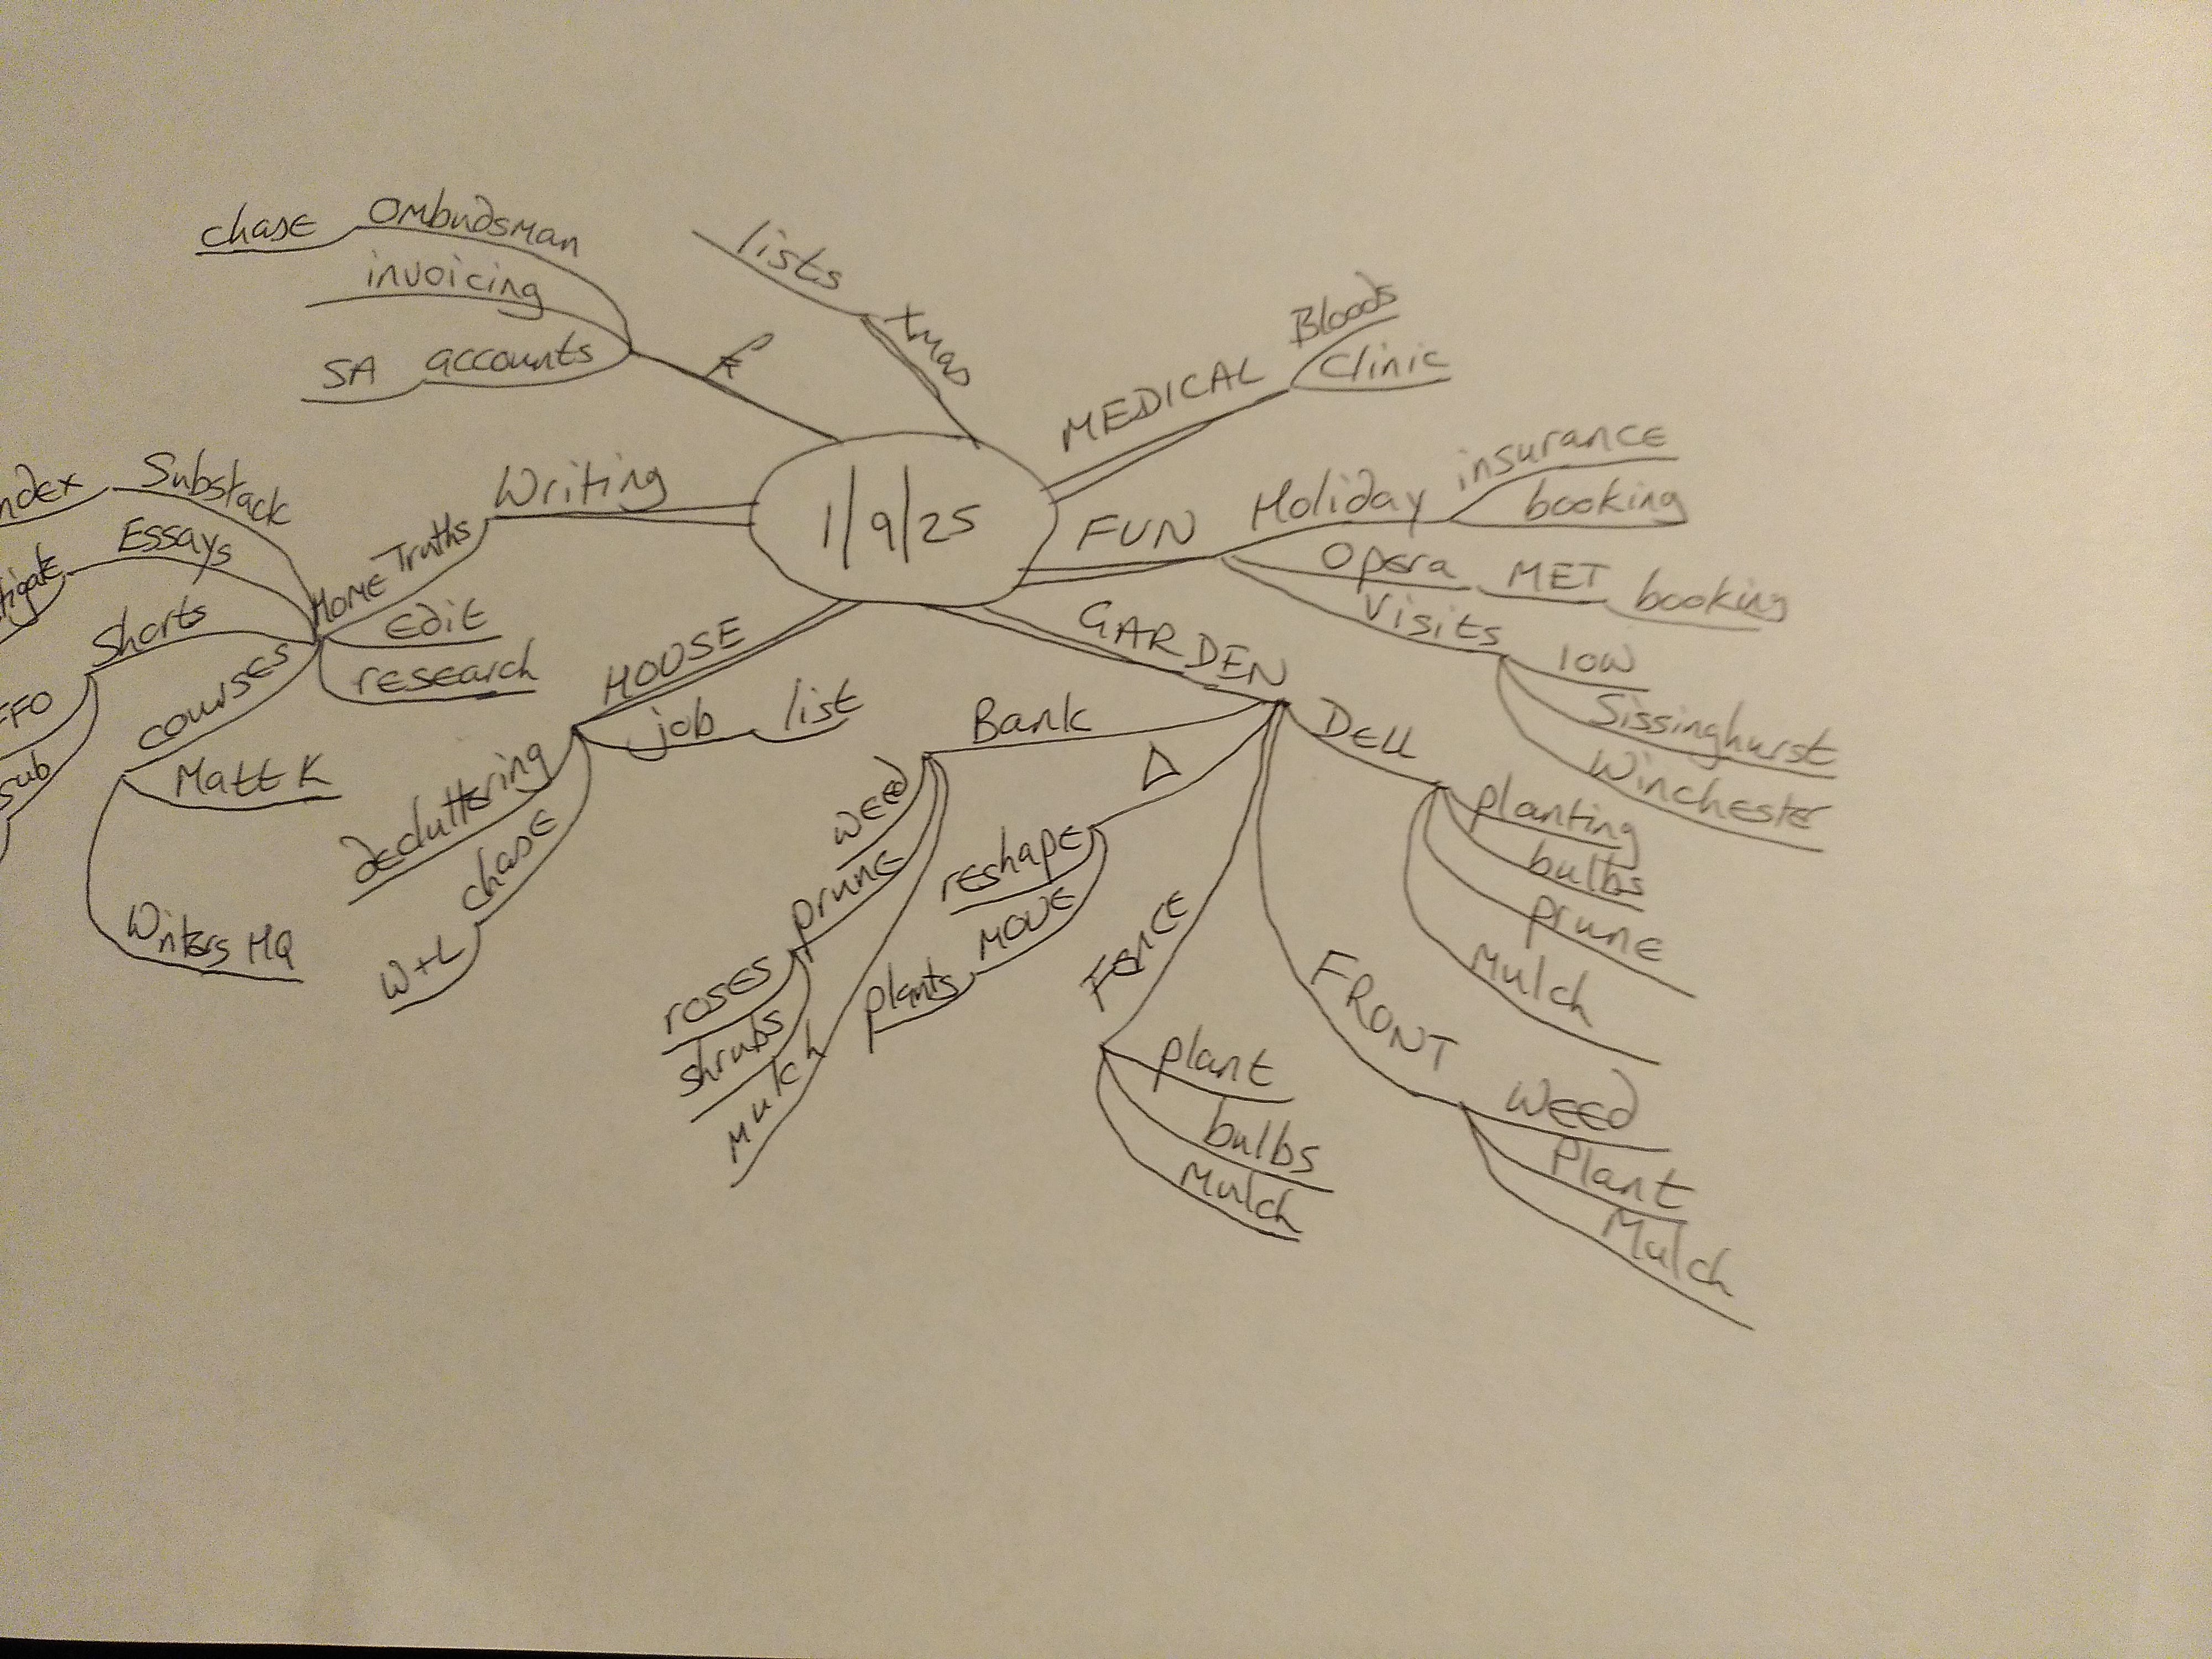 1/9/25
xmas
lists
MEDICAL
Bloods
Clinic
FUN
Holiday
insurance
booking
Opera MET booking
Visits
IOW
Sissinghurst
Winchester
GARDEN
Dell
planting
bulbs
prune
Mulch
FRONT
Weed
Plant
Mulch
FENCE
plant
bulbs
Mulch
Δ
reshape
Move
plants
Bank
weed
prune
roses
shrubs
Mulch
HOUSE
job list
decluttering
chase
W+L
Writing
Home Truths
Edit
research
Substack
Essays
Shorts
sub
courses
Matt K
Writers HQ
£
Ombudsman
chase
invoicing
accounts
SA